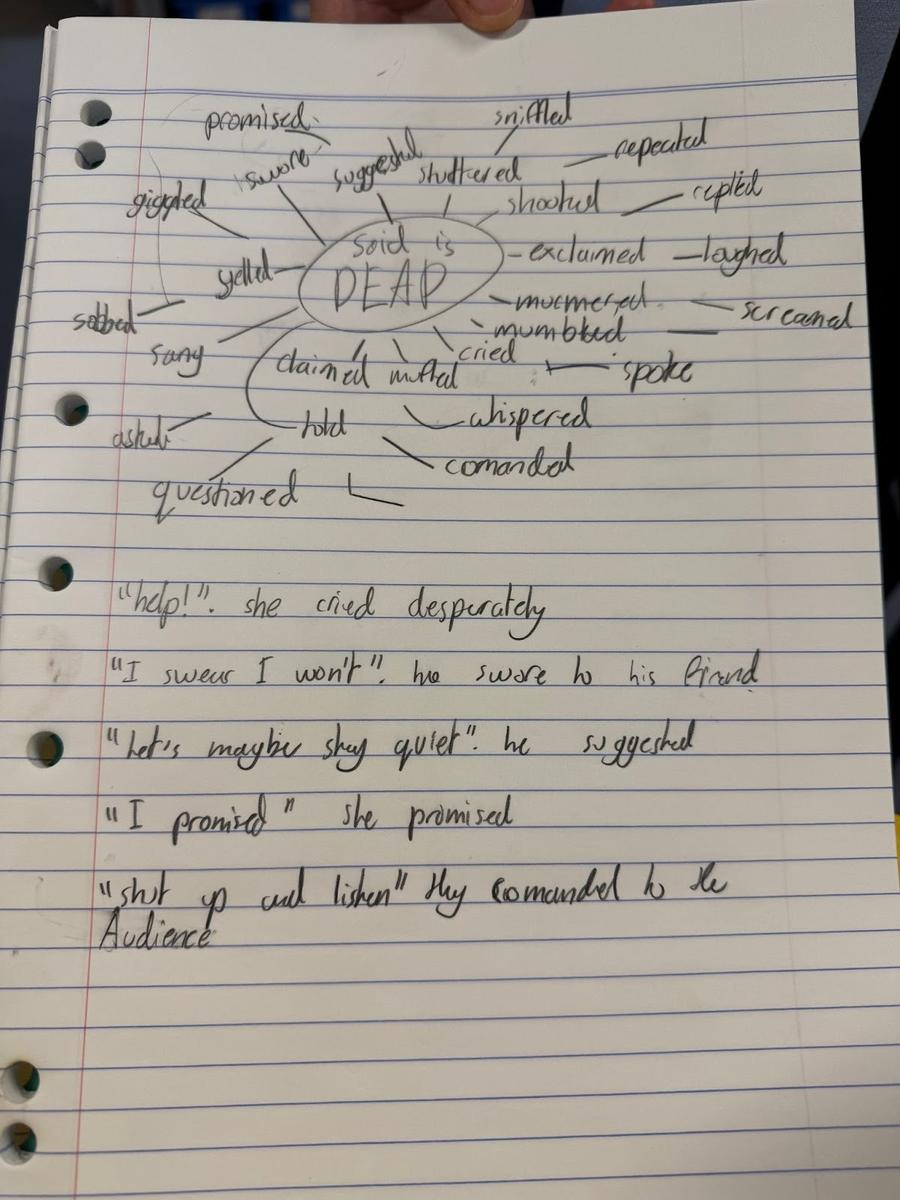 promised
sniffled
swore
suggested
stuttered
repeated
giggled
shouted
replied
said is
DEAD
yelled
exclaimed
laughed
murmered
screamed
sobbed
mumbled
sang
cried
claimed
spoke
whispered
asked
told
comanded
questioned
"help!". she cried desperately
"I swear I won't". he swore to his friend
"Let's maybe stay quiet". he suggested
"I promised" she promised
"shut up and listen" they comanded to the
Audience